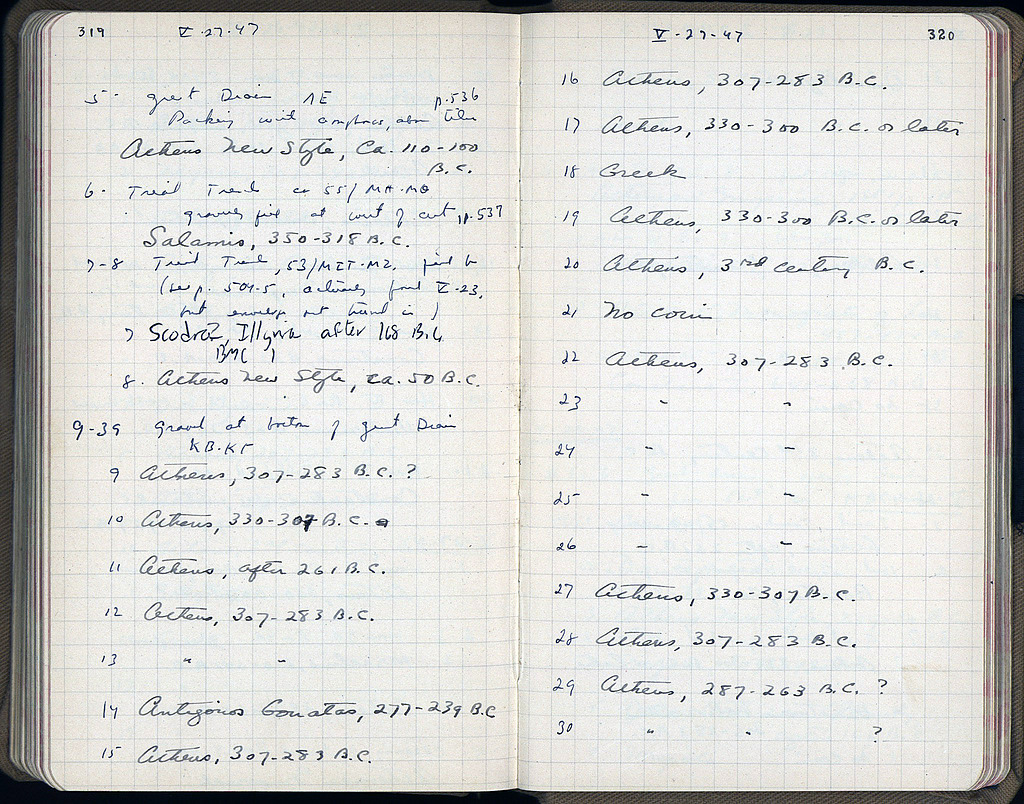 319 V-27-47
5. great Drain ΛE p.536
Packing with amphoras, above tiles
Athens New Style, Ca. 110-100
B.C.
6. Trial Trench ca 55/ΜΗ-ΜΘ
gravelly fill at west of cut, p.537
Salamis, 350-318 B.C.
7-8 Trial Trench, 53/
(see p. 504-5, actually found V-23,
but envelope not turned in)
7 Scodra, Illyria after 168 B.C.
BMC 1
8. Athens New Style, ca. 50 B.C.
9-39 Gravel at bottom of great Drain
ΚΒ-ΚΓ
9 Athens, 307-283 B.C. ?
10 Athens, 330-307 B.C.
11 Athens, after 261 B.C.
12 Athens, 307-283 B.C.
13 " "
14 Antigonos Gonatas, 277-239 B.C
15 Athens, 307-283 B.C.
V-27-47 320
16 Athens, 307-283 B.C.
17 Athens, 330-300 B.C. or later
18 Greek
19 Athens, 330-300 B.C. or later
20 Athens, 3rd century B.C.
21 No coin
22 Athens, 307-283 B.C.
23 " "
24 " "
25 " "
26 " "
27 Athens, 330-307 B.C.
28 Athens, 307-283 B.C.
29 Athens, 287-263 B.C. ?
30 " " ?